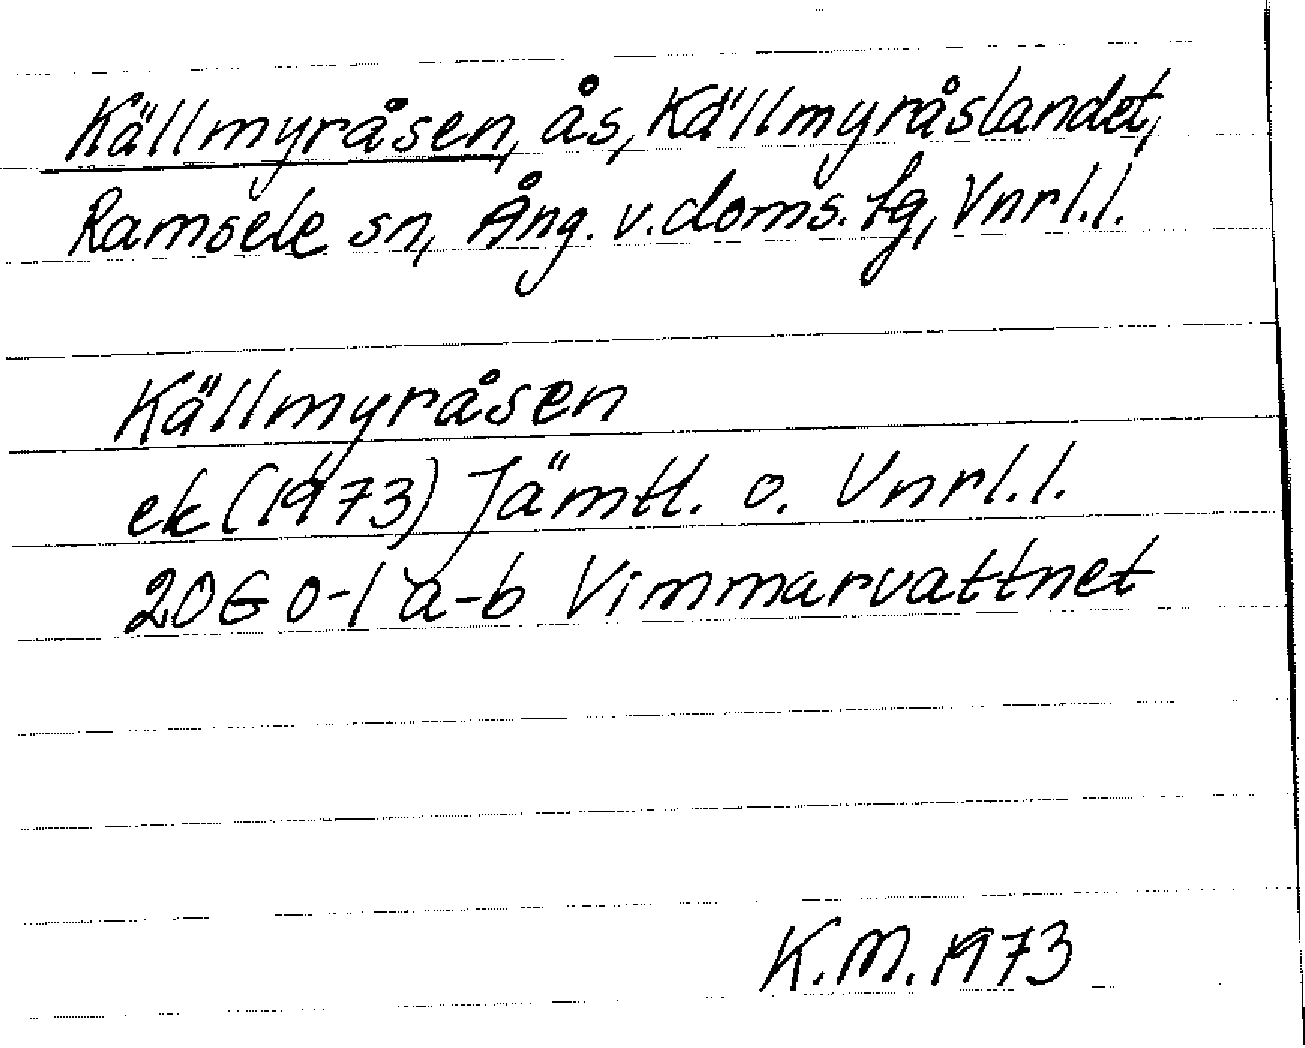 Källmyråsen, ås, Källmyråslandet,
Ramsele sn, Ång. v. doms. fg, Vnrl.l.
Källmyråsen
ek (1973) Jämtl. o. Vnrl.l.
20G 0-1 a-b Vimmarvattnet
K.M. 1973